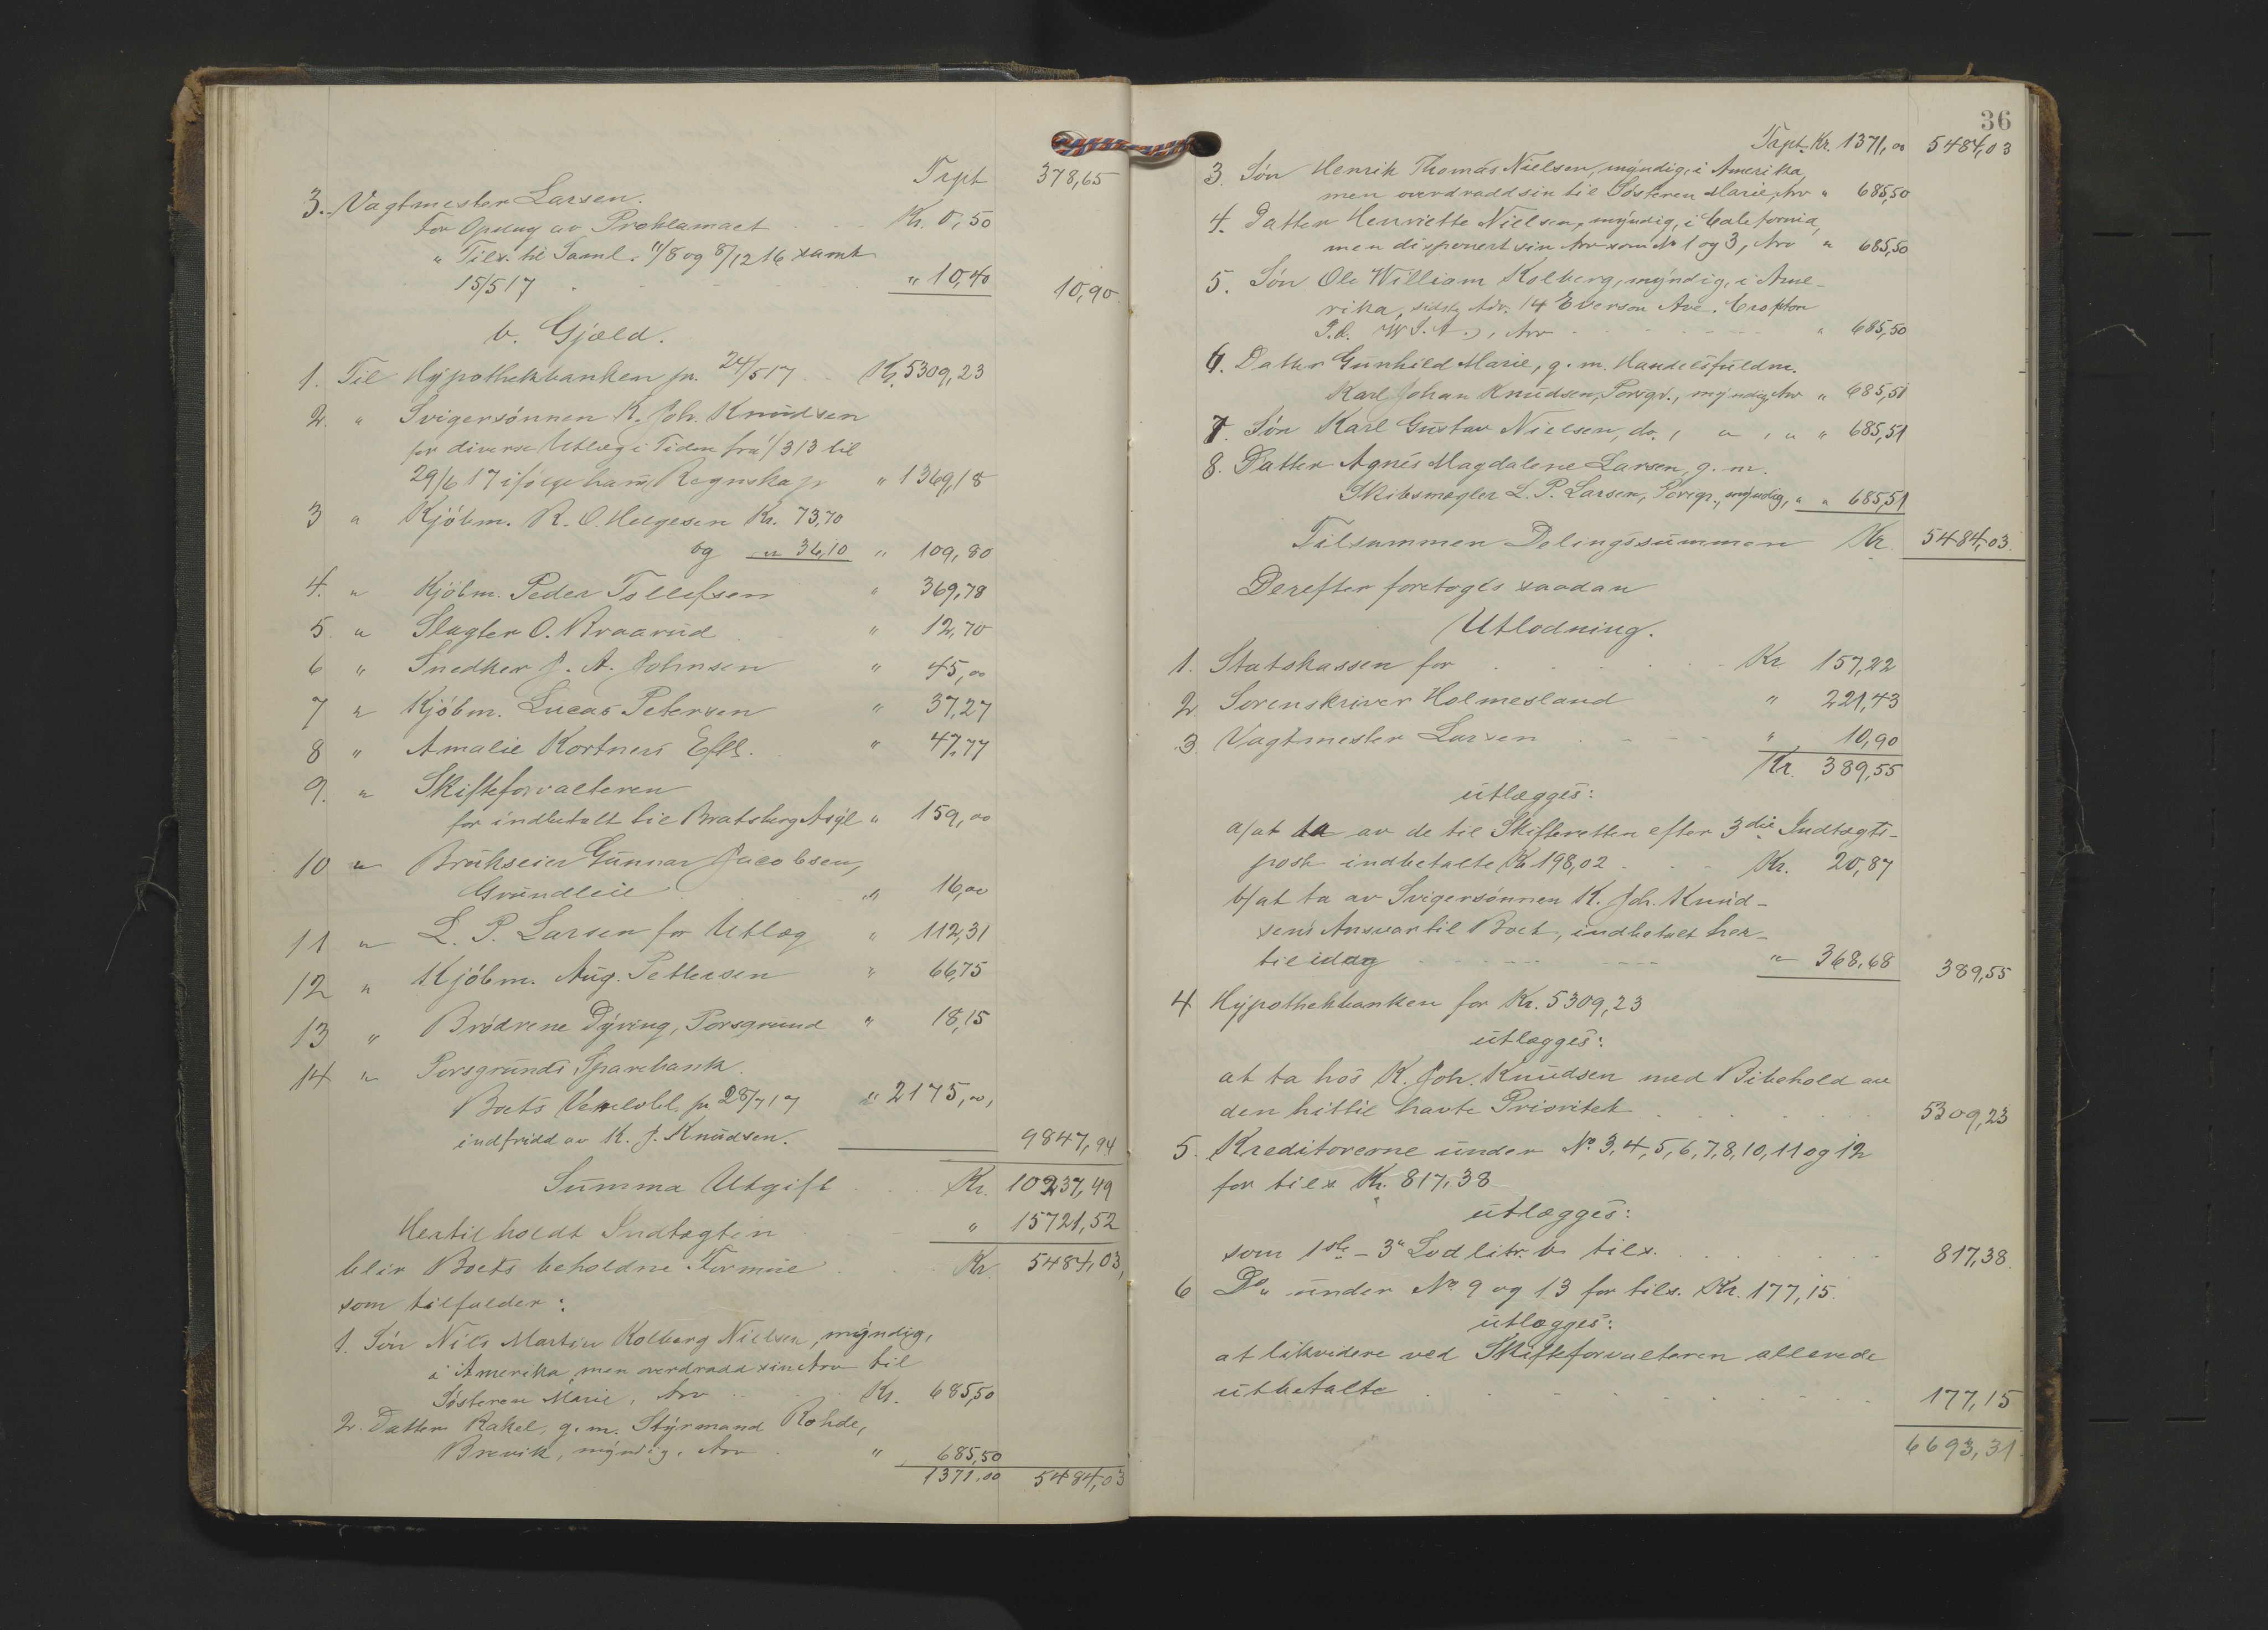 Trpt 378,65
3. Vagtmester Larsen.
For Opslag av Proklamaet Kr. 0,50
" Tils. til Saml. 11/8 og 8/12 16 samt
15/5 17 " 10,40 10,90
b. Gjæld.
1. Til Hypothekbanken pr. 24/5 17 Kr. 5309,23
2. " Svigersönnen K. Joh. Knudsen
for diverse Utlæg i Tiden fra 1/3 13 til
29/6 17 ifölge hans Regnskap " 1369,18
3 " Kjöbm. R. O. Helgesen Kr. 73,70
og " 36,10 " 109,80
4. " Kjöbm. Peder Tollefsen " 369,78
5. " Slagter O. Kraarud " 12,70
6 " Snedker J. A. Johnsen " 45,00
7 " Kjöbm. Lucas Petersen " 37,27
8 " Amalie Kortners Eftf. " 47,77
9. " Skifteforvalteren
for indbetalt til Bratsberg Asyl " 159,00
10 " Brukseier Gunnar Jacobsen,
Grundleie " 16,00
11 " L. P. Larsen for Utlæg " 112,31
12 " Kjöbm. Aug. Pettersen " 66,75
13 " Brödrene Dyring, Porsgrund " 18,15
14 " Porsgrunds Sparebank
Boets Vekselobl. pr 28/7 17 " 2175,00,
indfridd av K. J. Knudsen. 9847,94
Summa Utgift Kr. 10237,49
Hertil holdt Indtægten " 15721,52
blir Boets beholdne Formue Kr. 5484,03,
som tilfalder:
1. Sön Nils Martin Kolberg Nielsen, myndig,
i Amerika, men overdradd sin Arv til
Sösteren Marie, Arv Kr. 685,50
2. Datter Rakel, g. m. Styrmand Rohde,
Brevik, myndig, Arv " 685,50
1371.00 5484,03
36
Trpt. Kr. 1371,00 5484,03
3. Sön Henrik Thomas Nielsen, myndig, i Amerika
men overdradd sin til Sösteren Marie, Arv " 685,50
4. Datter Henriette Nielsen, myndig, i California,
men disponert sin Arv som No 1 og 3, Arv " 685,50
5. Sön Ole William Kolberg, myndig, i Ame-
rika, sidste Adr. 14 Everson Ave. Crofton
P.A. (U.S.A.), Arv " 685,50
6. Datter Gunhild Marie, g. m. Handelsfuldm.
Karl Johan Knudsen, Porsgr., myndig, Arv " 685,51
7. Sön Karl Gustav Nielsen, do., " , " " 685,51
8. Datter Agnes Magdalene Larsen, g. m.
Skibsmægler L. P. Larsen, Porsgr., myndig, " " 685,51
Tilsammen Delingssummen Kr. 5484,03.
Derefter foretoges saadan
Utlodning.
1. Statskassen for Kr. 157,22
2 Sorenskriver Holmesland " 221,43
3. Vagtmester Larsen " 10,90
Kr. 389,55
utlægges:
a/ at ta av de til Skifteretten efter 3die Indtægts-
post indbetalte Kr 198,02 Kr. 20,87
b/ at ta av Svigersönnen K. Joh. Knud-
sens Ansvar til Boet, indbetalt her-
til idag " 368,68 389,55
4 Hypothekbanken for Kr. 5309,23
utlægges:
at ta hos K. Joh. Knudsen med Bibehold av
den hittil havte Prioritet 5309,23
5. Kreditorerne under No 3, 4, 5, 6, 7, 8, 10, 11 og 12
for tils Kr. 817,38
utlægges:
som 1ste – 3" Lod litr. b tils. 817,38.
6 Do. under No 9 og 13 for tils. Kr. 177,15.
utlægges:
at likvidere ved Skifteforvalteren allerede
utbetalte 177,15
6693,31